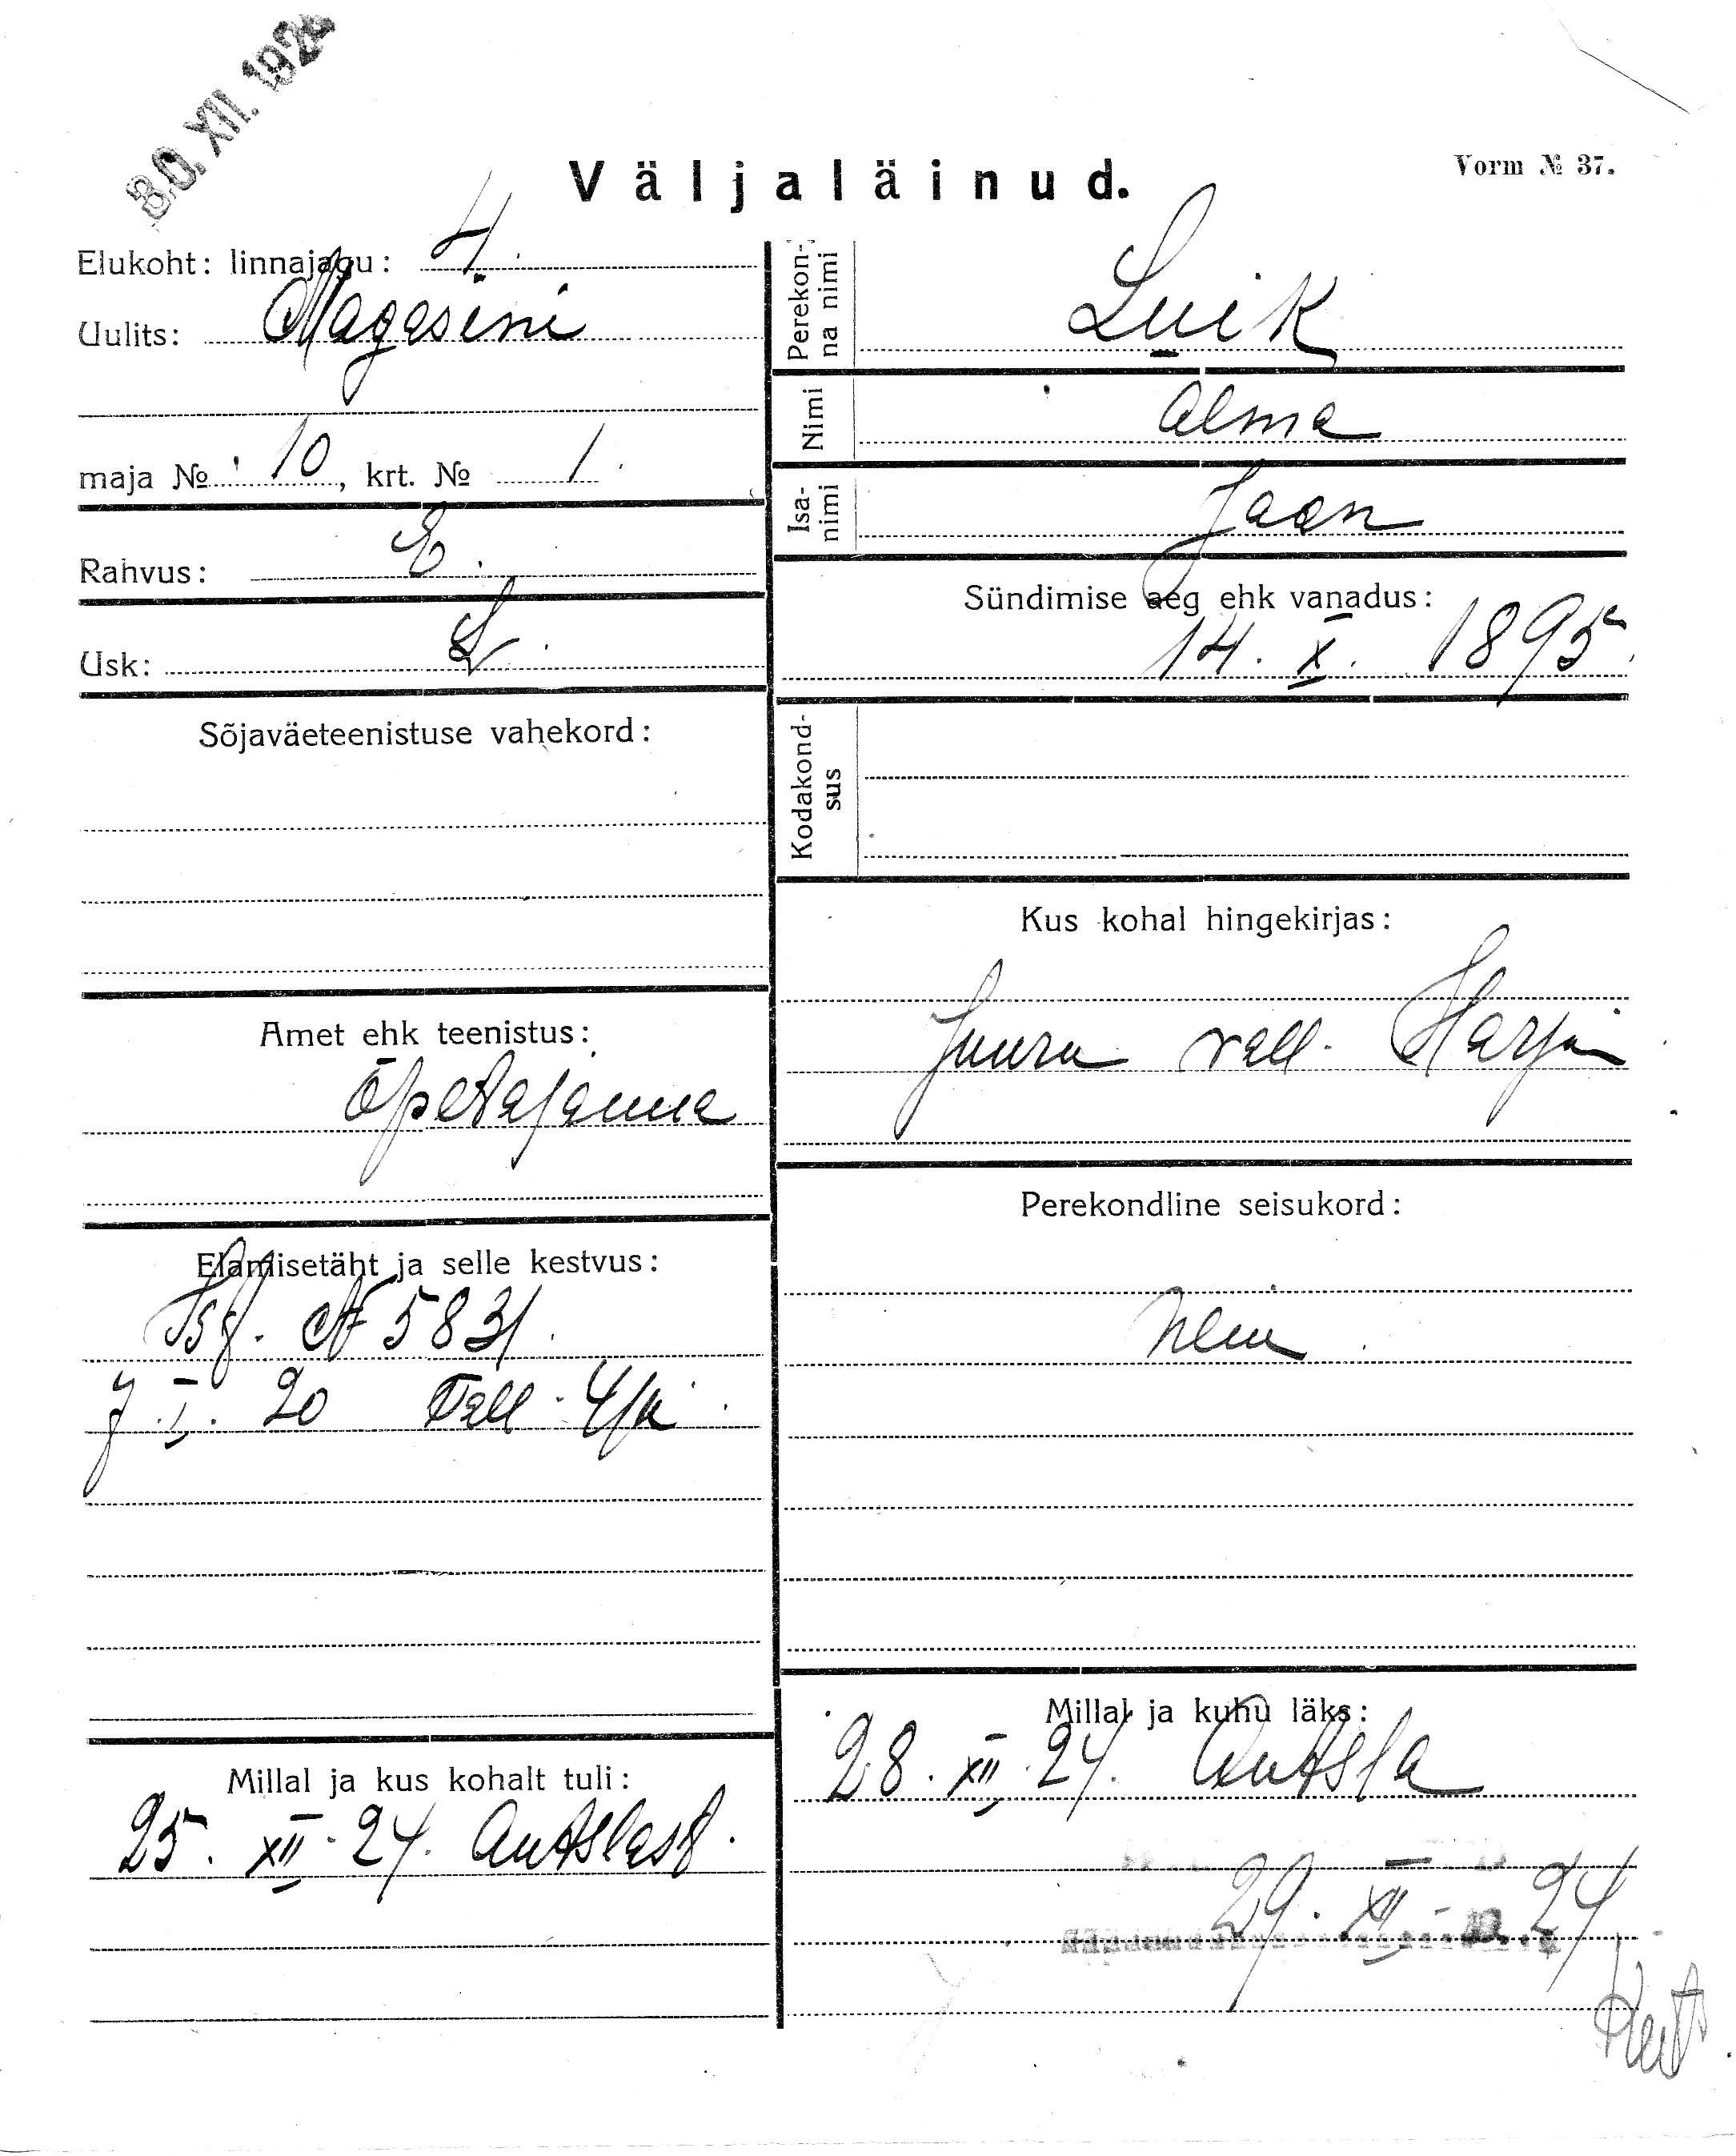 30. XII. 1924
Väljaläinud.
Vorm № 37.
Elukoht: linnajagu: 4.
Uulits: Magasini
maja № 10, krt. № 1.
Rahvus: E.
Usk: L.
Sõjaväeteenistuse vahekord:
Amet ehk teenistus:
Õpetajanna
Elamisetäht ja selle kestvus:
№ 5831.
7. I. 20 Tall.
Millal ja kus kohalt tuli:
25. XII. 24. Antslast.
Perekon-
na nimi
Luik
Nimi
Alma
Isa-
nimi
Jaan
Sündimise aeg ehk vanadus:
14. X. 1895.
Kodakond-
sus
Kus kohal hingekirjas:
Juuru vall. Harju
Perekondline seisukord:
Millal ja kuhu läks:
28. XII. 24. Antsla
29. XII 24